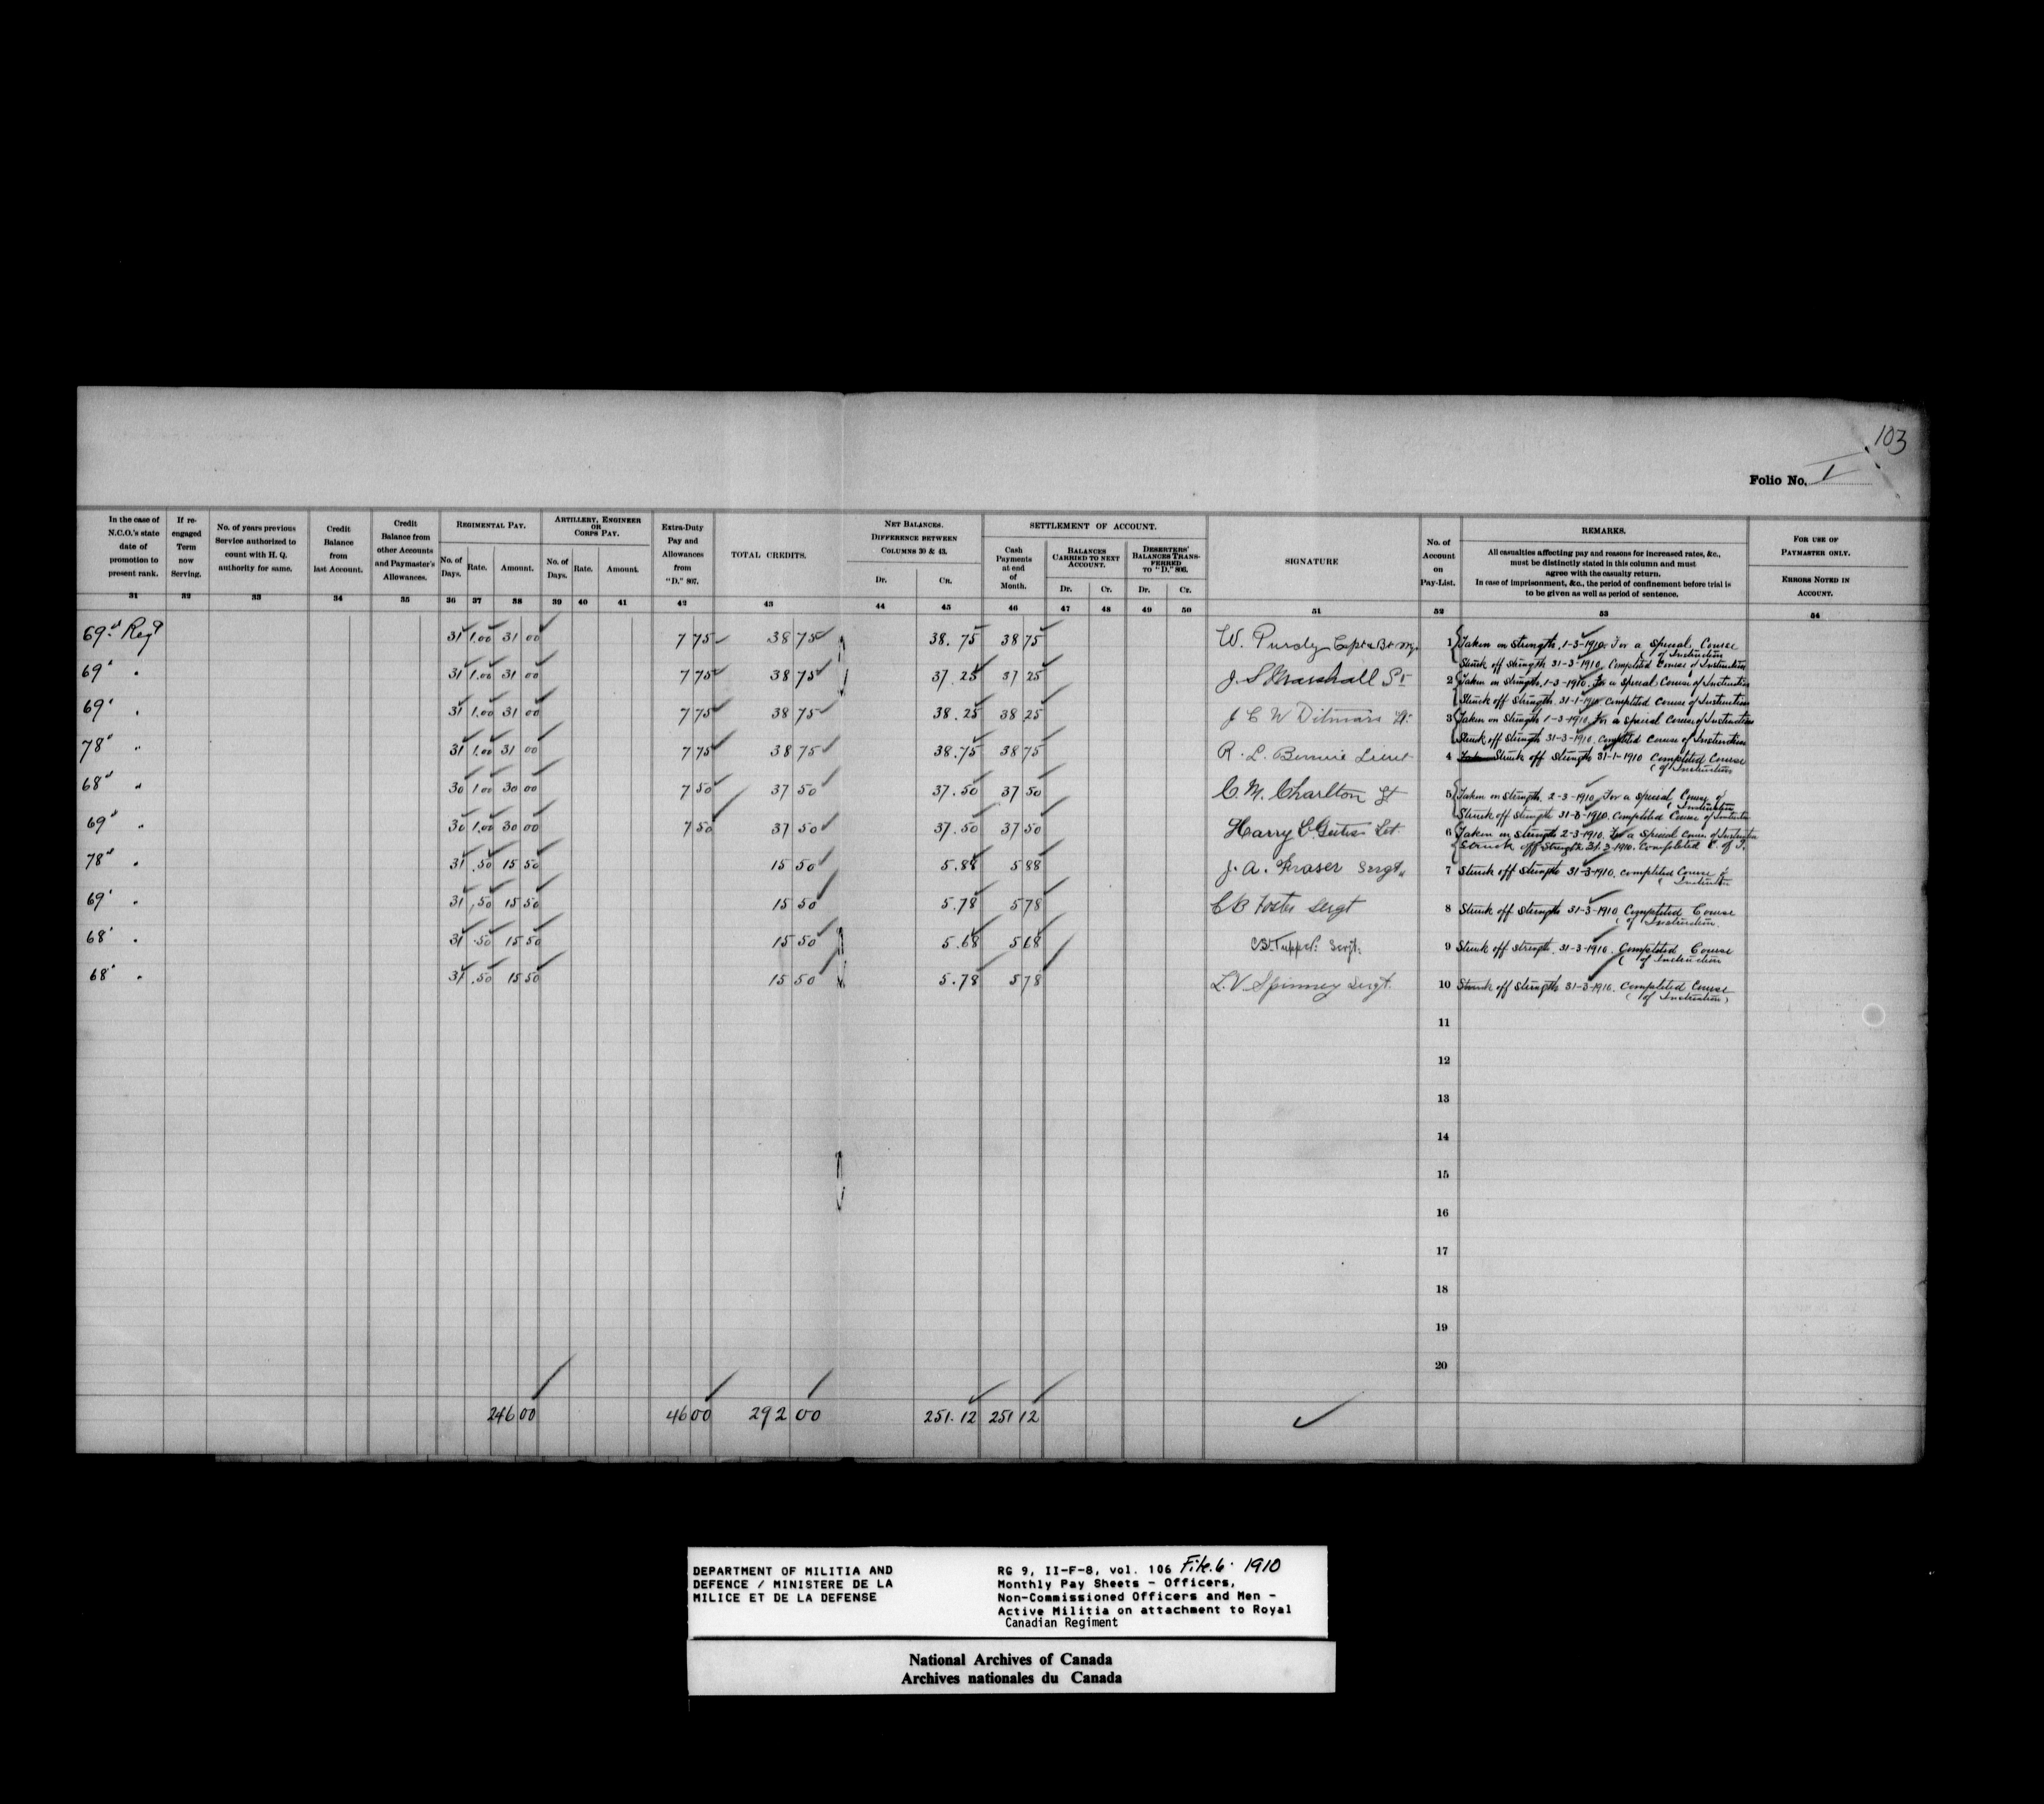 103
Folio No. 1
In the case of N.C.O.'s state date of promotion to present rank.
If re-engaged Term now Serving.
No. of years previous Service authorized to count with H. Q. authority for same.
Credit Balance from last Account.
Credit Balance from other Accounts and Paymaster's Allowances.
REGIMENTAL PAY.
No. of Days. Rate. Amount.
ARTILLERY, ENGINEER OR CORPS PAY.
No. of Days. Rate. Amount.
Extra-Duty Pay and Allowances from "D." 807.
TOTAL CREDITS.
NET BALANCES. DIFFERENCE BETWEEN COLUMNS 30 & 43.
Dr. Cr.
SETTLEMENT OF ACCOUNT.
Cash Payments at end of Month.
BALANCES CARRIED TO NEXT ACCOUNT.
Dr. Cr.
DESERTERS' BALANCES TRANSFERRED TO "D." 806.
Dr. Cr.
SIGNATURE
No. of Account on Pay-List.
REMARKS.
All casualties affecting pay and reasons for increased rates, &c., must be distinctly stated in this column and must agree with the casualty return.
In case of imprisonment, &c., the period of confinement before trial is to be given as well as period of sentence.
FOR USE OF PAYMASTER ONLY.
ERRORS NOTED IN ACCOUNT.
31 32 33 34 35 36 37 38 39 40 41 42 43 44 45 46 47 48 49 50 51 52 53 54
69th Regt 31 1.00 31 00 7 75 38 75 38.75 38 75 W. Purdy Capt & Bt Maj. 1 Taken on Strength 1-3-1910. For a Special Course of Instruction
Struck off Strength 31-3-1910. Completed Course of Instruction
69" " 31 1.00 31 00 7 75 38 75 37.25 37 25 J. S Marshall Lt 2 Taken on Strength 1-3-1910. For a Special Course of Instruction
Struck off Strength 31-1-1910 Completed Course of Instruction
69" " 31 1.00 31 00 7 75 38 75 38.25 38 25 J C W Ditmars Lt 3 Taken on Strength 1-3-1910. For a special Course of Instruction
Struck off Strength 31-3-1910. Completed Course of Instruction
78" " 31 1.00 31 00 7 75 38 75 38.75 38 75 R. L. Lieut 4 Struck off Strength 31-1-1910 Completed Course of Instruction
68" " 30 1.00 30 00 7 50 37 50 37.50 37 50 C. M. Charlton Lt 5 Taken on Strength 2-3-1910. For a Special Course of Instruction
Struck off Strength 31-3-1910. Completed Course of Instruction
69" " 30 1.00 30 00 7 50 37 50 37.50 37 50 Harry C. 6 Taken on Strength 2-3-1910. For a Special Course of Instruction
Struck off Strength 31-3-1910. Completed C. of I.
78" " 31 .50 15 50 15 50 5.88 5 88 J. A. Fraser Sergt. 7 Struck off Strength 31-3-1910. Completed Course of Instruction
69" " 31 .50 15 50 15 50 5.78 5 78 C B Foster Sergt 8 Struck off Strength 31-3-1910 Completed Course of Instruction.
68" " 31 .50 15 50 15 50 5.68 5 68 Tupper Sergt. 9 Struck off Strength. 31-3-1910. Completed Course of Instruction
68" " 31 .50 15 50 15 50 5.78 5 78 L. V. Spinney Sergt. 10 Struck off Strength 31-3-1910. Completed Course of Instruction
11
12
13
14
15
16
17
18
19
20
246 00 46 00 292 00 251.12 251 12
DEPARTMENT OF MILITIA AND
DEFENCE / MINISTERE DE LA
MILICE ET DE LA DEFENSE
RG 9, II-F-8, vol. 106 File.6. 1910
Monthly Pay Sheets - Officers,
Non-Commissioned Officers and Men -
Active Militia on attachment to Royal
Canadian Regiment
National Archives of Canada
Archives nationales du Canada